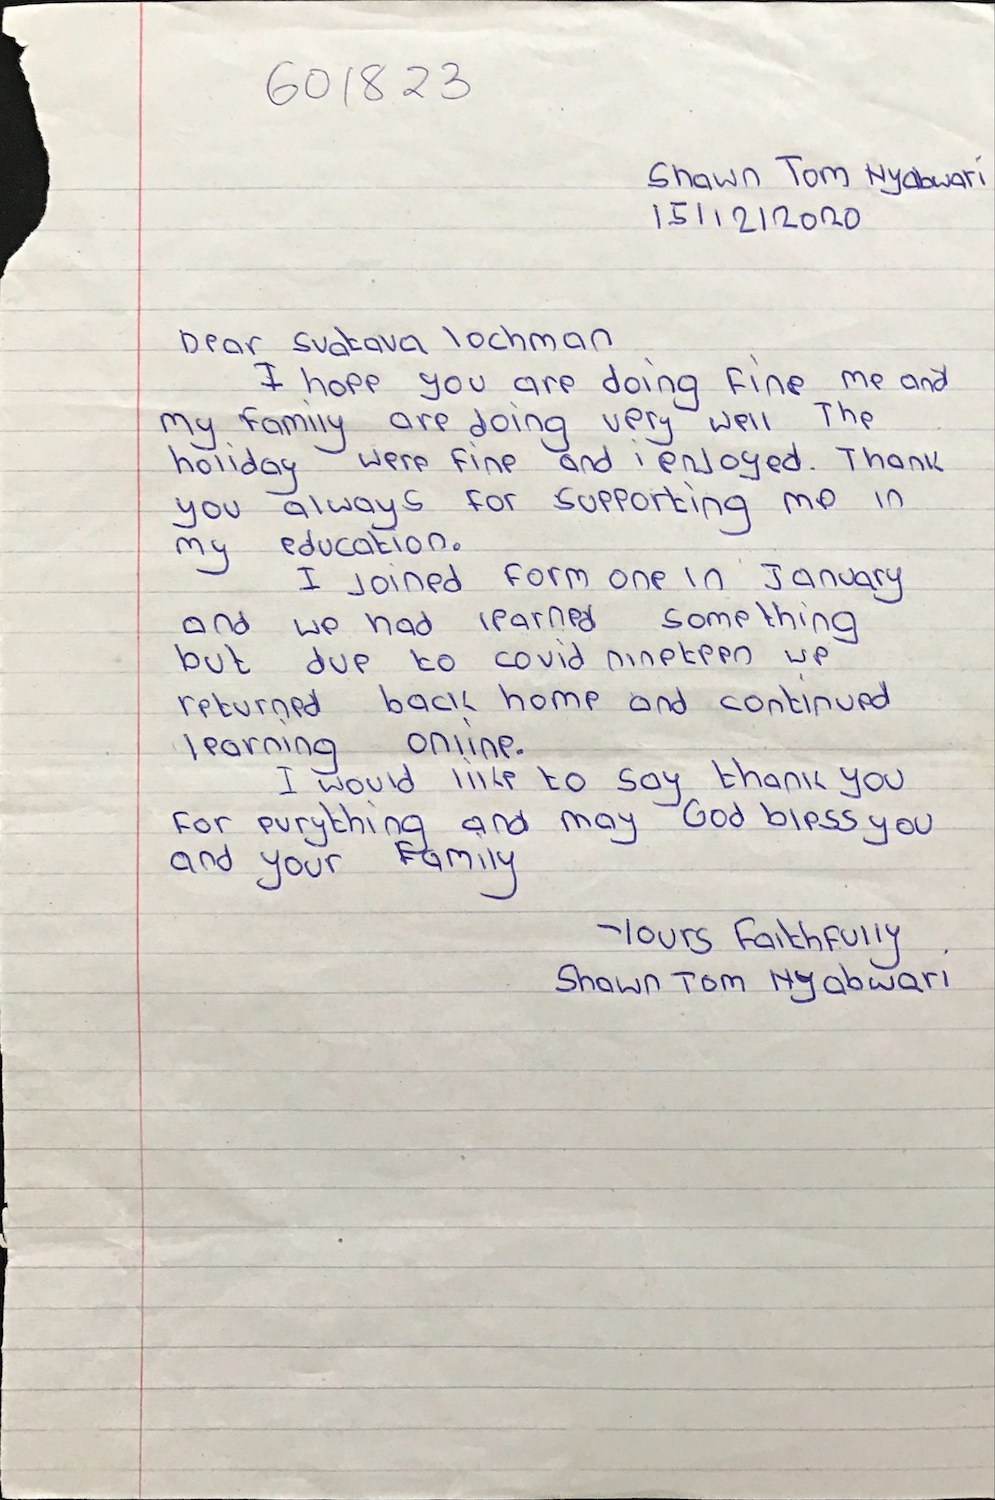 601823
Shawn Tom Nyabwari
15/12/2020
Dear Svatava lochman
I hope you are doing fine me and
my family are doing very well The
holiday were fine and i enjoyed. Thank
you always for supporting me in
my education.
I joined form one in January
and we had learned something
but due to covid nineteen we
returned back home and continued
learning online.
I would liike to say thank you
for evrything and may God bless you
and your family
Yours faithfully
Shawn Tom Nyabwari